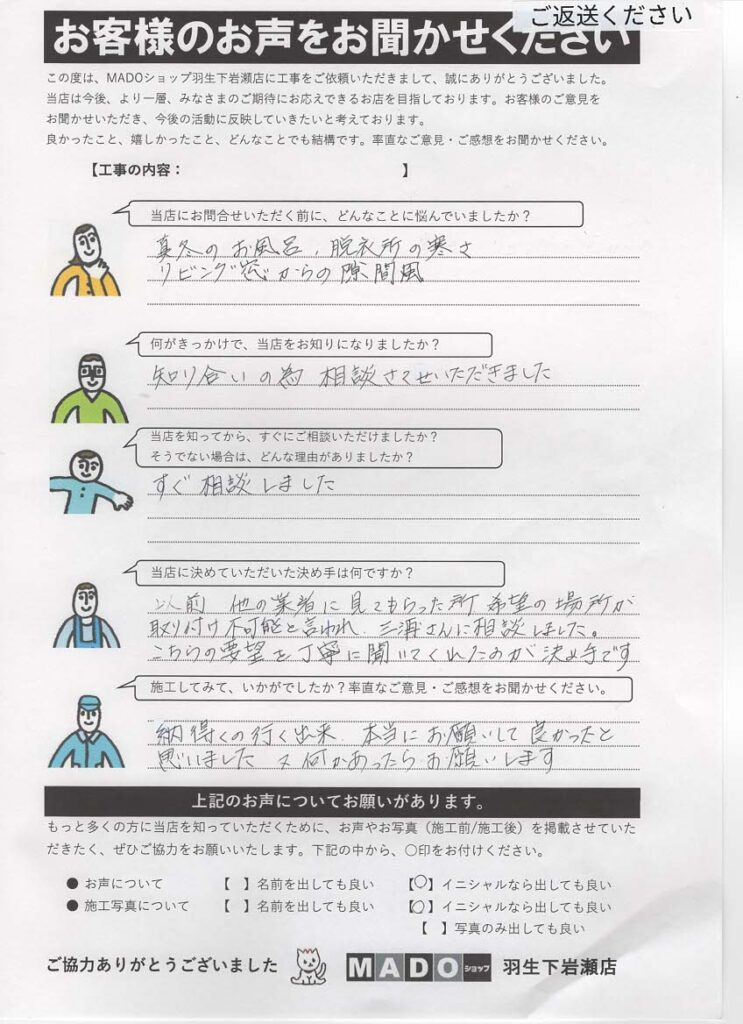 ご返送ください
お客様のお声をお聞かせください
この度は、MADOショップ羽生下岩瀬店に工事をご依頼いただきまして、誠にありがとうございました。
当店は今後、より一層、みなさまのご期待にお応えできるお店を目指しております。お客様のご意見を
お聞かせいただき、今後の活動に反映していきたいと考えております。
良かったこと、嬉しかったこと、どんなことでも結構です。率直なご意見・ご感想をお聞かせください。
【工事の内容： 】
当店にお問合せいただく前に、どんなことに悩んでいましたか？
真冬のお風呂、脱衣所の寒さ
リビング窓からの隙間風
何がきっかけで、当店をお知りになりましたか？
知り合いの為 相談させていただきました
当店を知ってから、すぐにご相談いただけましたか？
そうでない場合は、どんな理由がありましたか？
すぐ相談しました
当店に決めていただいた決め手は何ですか？
以前 他の業者に見てもらった所 希望の場所が
取り付け不可能と言われ、三海さんに相談しました。
こちらの要望を丁寧に聞いてくれたのが決め手です
施工してみて、いかがでしたか？率直なご意見・ご感想をお聞かせください。
納得くの行く出来、本当にお願いして良かったと
思いました 又何かあったらお願いします
上記のお声についてお願いがあります。
もっと多くの方に当店を知っていただくために、お声やお写真（施工前/施工後）を掲載させていた
だきたく、ぜひご協力をお願いいたします。下記の中から、〇印をお付けください。
● お声について 【 】名前を出しても良い 【〇】イニシャルなら出しても良い
● 施工写真について 【 】名前を出しても良い 【〇】イニシャルなら出しても良い
【 】写真のみ出しても良い
ご協力ありがとうございました MADOショップ 羽生下岩瀬店